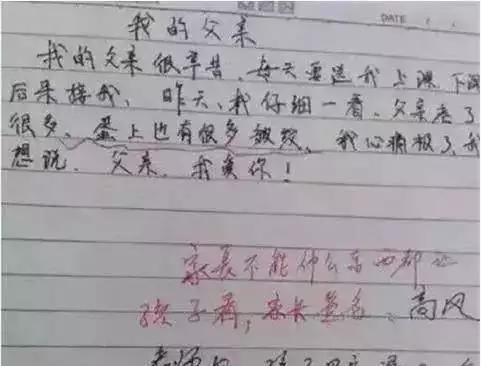 DATE
我的父亲
我的父亲很辛苦、每天要送我上课、下课
后来接我、昨天、我仔细一看、父亲老了
很多、蛋上也有很多皱纹、我心痛极了、我
想说、父亲、我爱你！
家长不能什么东西都让
孩子看，家长签名、高风
老师